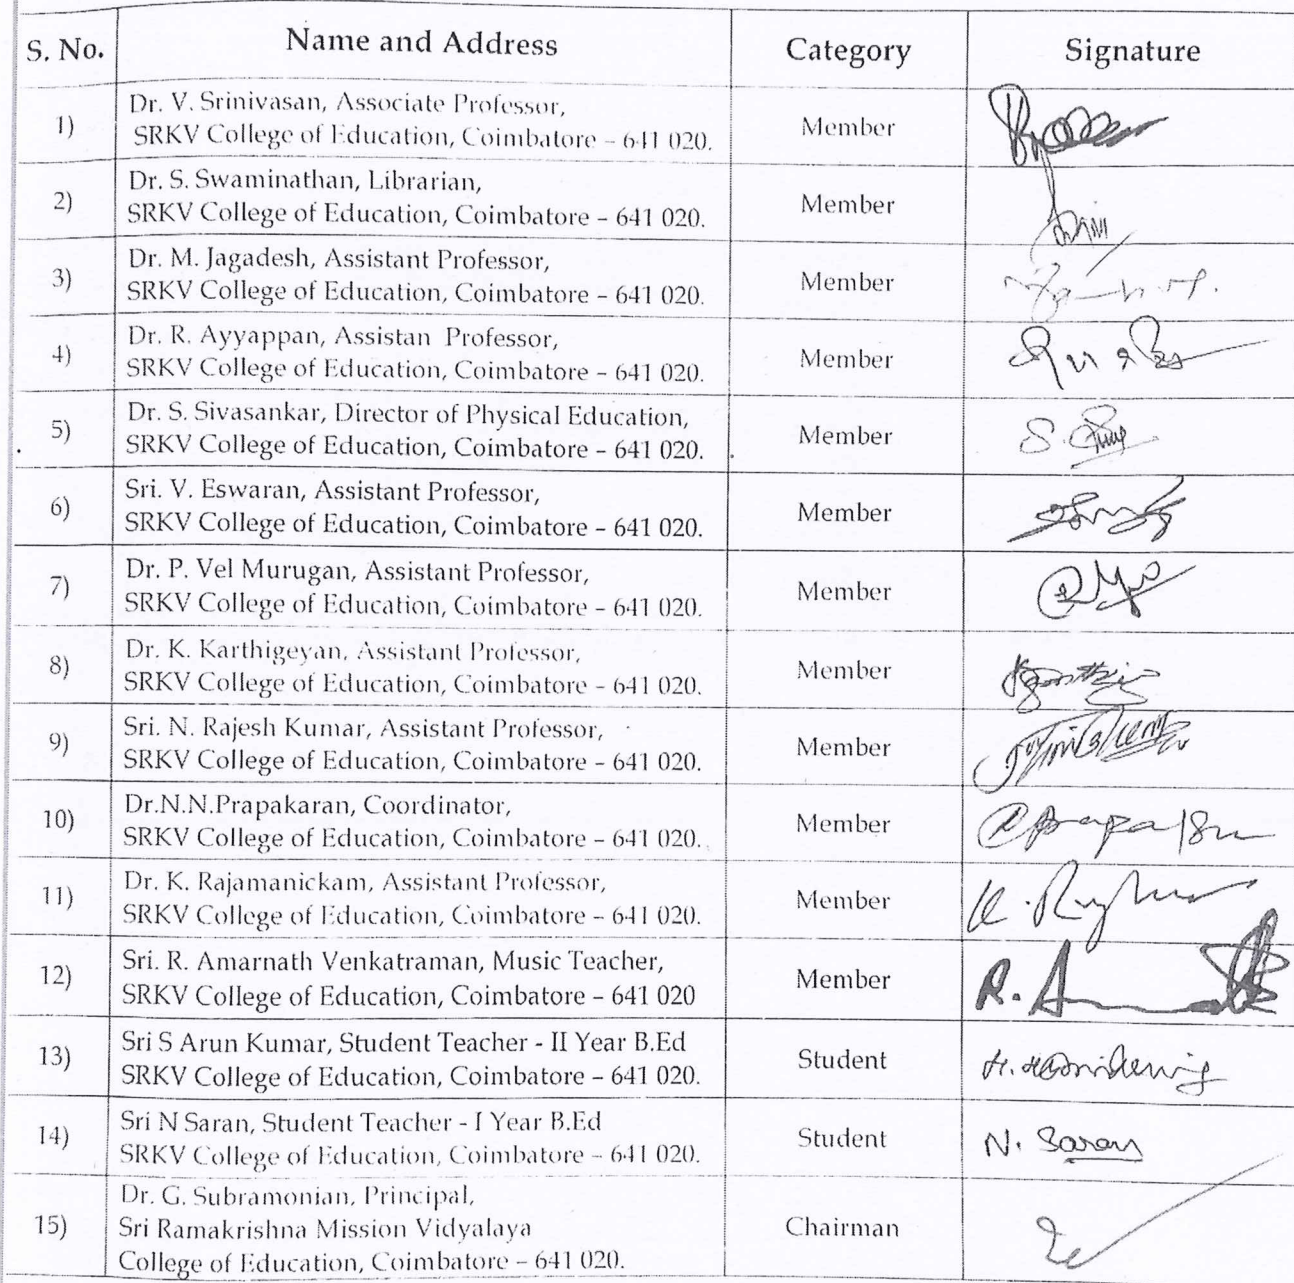 S. No. Name and Address Category Signature
1) Dr. V. Srinivasan, Associate Professor,
SRKV College of Education, Coimbatore – 641 020. Member
2) Dr. S. Swaminathan, Librarian,
SRKV College of Education, Coimbatore – 641 020. Member
3) Dr. M. Jagadesh, Assistant Professor,
SRKV College of Education, Coimbatore – 641 020. Member
4) Dr. R. Ayyappan, Assistan Professor,
SRKV College of Education, Coimbatore – 641 020. Member
5) Dr. S. Sivasankar, Director of Physical Education,
SRKV College of Education, Coimbatore – 641 020. Member
6) Sri. V. Eswaran, Assistant Professor,
SRKV College of Education, Coimbatore – 641 020. Member
7) Dr. P. Vel Murugan, Assistant Professor,
SRKV College of Education, Coimbatore – 641 020. Member
8) Dr. K. Karthigeyan, Assistant Professor,
SRKV College of Education, Coimbatore – 641 020. Member
9) Sri. N. Rajesh Kumar, Assistant Professor,
SRKV College of Education, Coimbatore – 641 020. Member
10) Dr.N.N.Prapakaran, Coordinator,
SRKV College of Education, Coimbatore – 641 020. Member
11) Dr. K. Rajamanickam, Assistant Professor,
SRKV College of Education, Coimbatore – 641 020. Member
12) Sri. R. Amarnath Venkatraman, Music Teacher,
SRKV College of Education, Coimbatore – 641 020 Member
13) Sri S Arun Kumar, Student Teacher - II Year B.Ed
SRKV College of Education, Coimbatore – 641 020. Student
14) Sri N Saran, Student Teacher - I Year B.Ed
SRKV College of Education, Coimbatore – 641 020. Student N. Saran
15) Dr. G. Subramonian, Principal,
Sri Ramakrishna Mission Vidyalaya Chairman
College of Education, Coimbatore – 641 020.